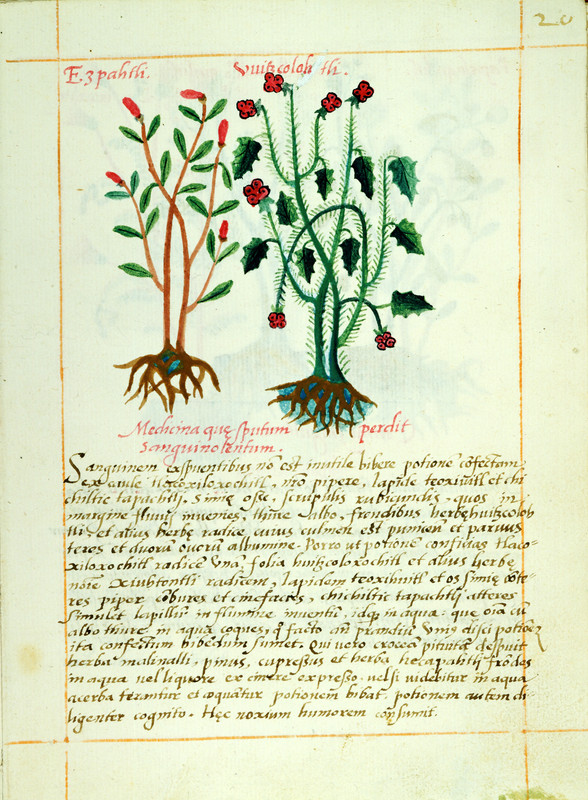 20
Ezpahtli. Vuitzcolohtli.
Medicina quę sputum perdit
Sanguinolentum.
Sanguinem exspuentibus nō est inutile bibere potionē cōfectam
ex caule tlacoxiloxochitl, nro pipere, lapide teoxiuitl et chi
chiltic tapachtli, simię osse, scrupulis rubicundis quos in
margine fluuij inuenies, thure albo, frondibus herbę huitzcoloh
tli et alius herbę radice, cuius culmen est puniceum et paruus
teres et duorū ouorū albumine. Porro ut potionē conficias tlaco-
xiloxochitl radicē unā, folia huitzcoloxochitl et alius herbę
noīe radicem, lapidem teoxihuitl et os simię cōte-
res piper cōbures et cinefacies, chichiltic tapachtli atteres
simul et lapilli in flumine inuentic, idq in aqua: que oīa cū
albo thure in aqua coques, q facto an prandiū unīs disci potionē
ita confectum bibēdum sumet. Qui uero croceā pituitā despuit
herba malinalli, pinus, cupressus et herbę hecapahtly frōdes
in aqua uel liquore ex cinere expresso, uel si uidebitur in aqua
acerba terantur et coquātur potionem bibat potionem autem di
ligenter cognito. Hęc noxium humorem cōsumit.